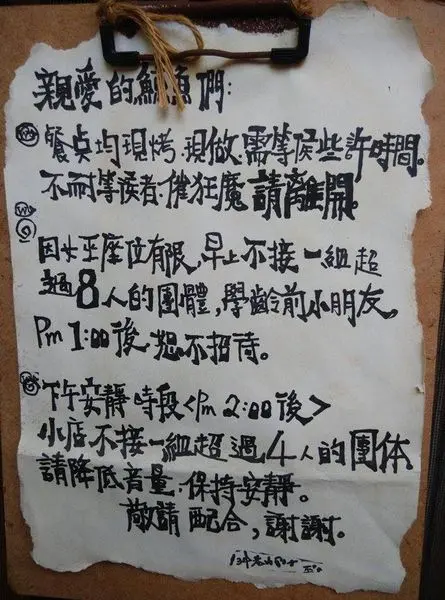 親愛的鱷魚們:
餐点均現烤.現做.需等候些許時間。
不耐等候者.催狂魔請離開。
因水巫座位有限,早上不接一組超
過8人的團體,學齡前小朋友,
Pm 1:00後.恕不招待。
下午安靜時段<Pm 2:00後>
小店不接一組超過4人的團体
請降低音量.保持安靜。
敬請配合,謝謝。